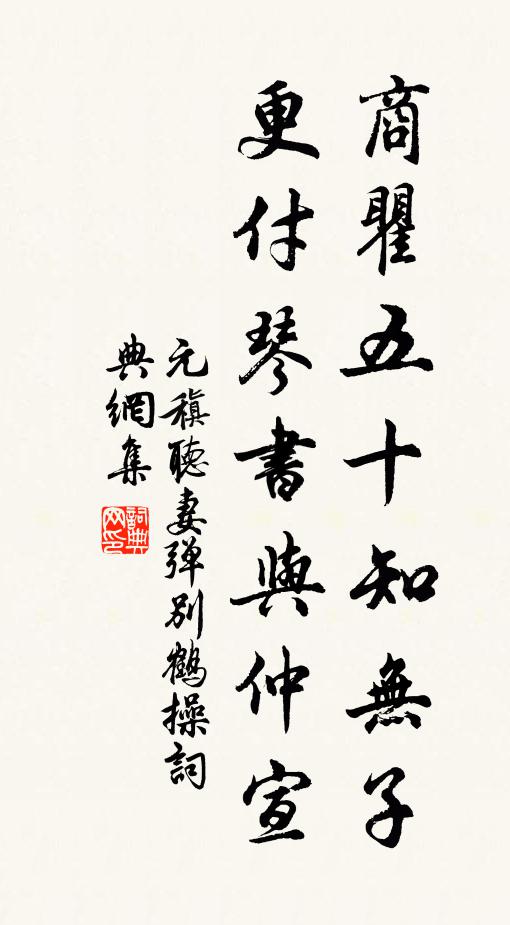 商瞿五十知無子
更付琴書與仲宣
元稹聽妻彈別鶴操詞
典網集
詞典
网印